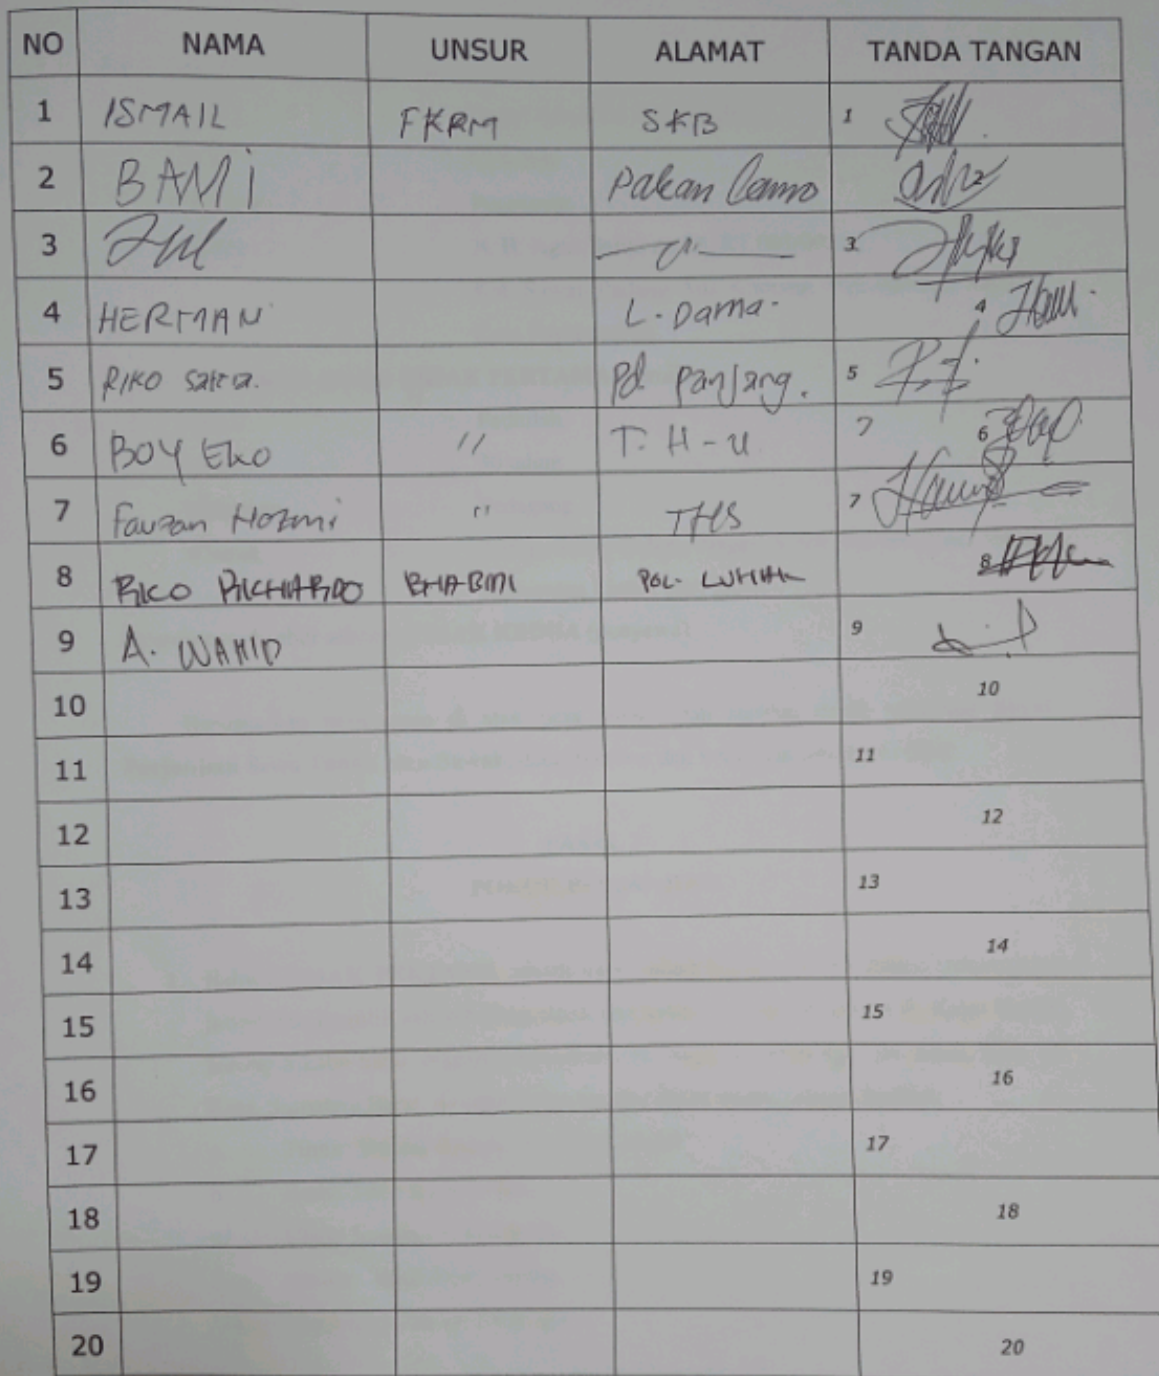 NO NAMA UNSUR ALAMAT TANDA TANGAN
1 ISMAIL FKRM SKB 1
2 BAMI Pakan Camo 2
3 Jul 3
4 HERMAN L. Dama. 4
5 RIKO satra. Pd. Panjang. 5
6 BOY EKO " T. H - U 7 6
7 Fauzan Hozmi " THS 7
8 RICO RICHARDO BHABIN POL. LUHAK 8
9 A. WAHID 9
10 10
11 11
12 12
13 13
14 14
15 15
16 16
17 17
18 18
19 19
20 20